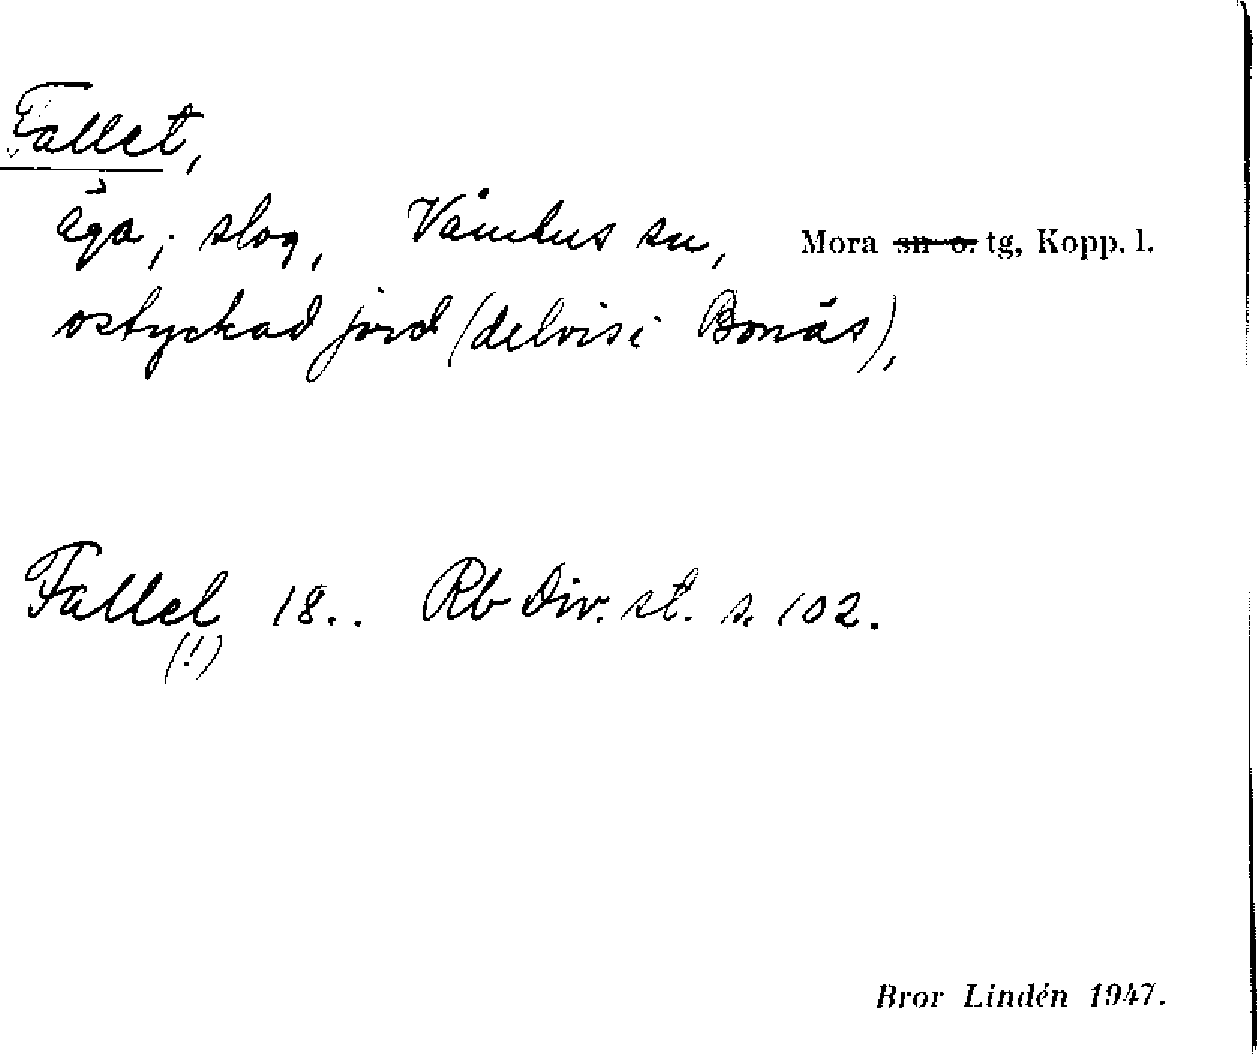 Fallet,
äga; slog, Våmhus sn, Mora ~~sn o.~~ tg, Kopp. l.
ostyckad jord (delvis i Bonäs),
Fallel 18.. Rb Div. st. s. 102.
(!)
Bror Lindén 1947.